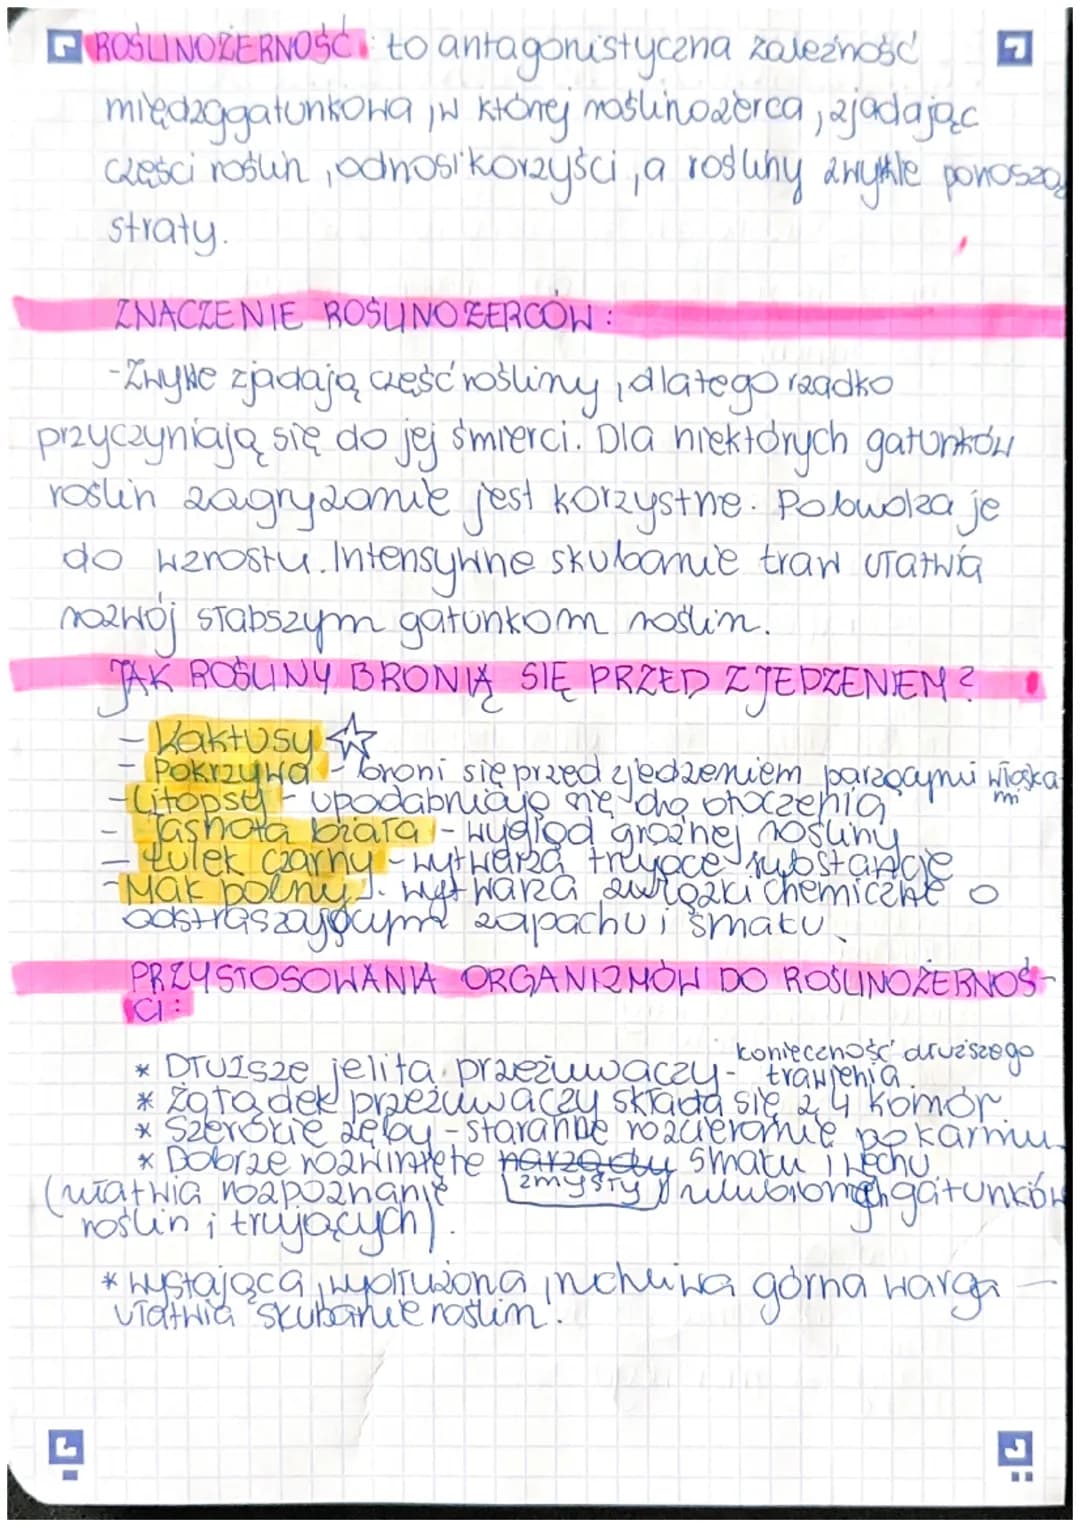 ROŚLINOŻERNOŚĆ: to antagonistyczna zależność
międzygatunkowa, w której roślinożerca, zjadając
części roślin, odnosi korzyści, a rośliny zwykle ponoszą
straty.
ZNACZENIE ROŚLINOŻERCÓW:
-Zwykle zjadają część rośliny, dlatego rzadko
przyczyniają się do jej śmierci. Dla niektórych gatunków
roślin zagryzanie jest korzystne. Pobudza je
do wzrostu. Intensywne skubanie traw ułatwia
rozwój słabszym gatunkom roślin.
JAK ROŚLINY BRONIĄ SIĘ PRZED ZJEDZENIEM?
- Kaktusy ☆
- Pokrzywa - broni się przed zjedzeniem parzącymi włoska
mi
-Litopsy - upodabniają się do otoczenia
- Jasnota biała - wygląd groźnej rośliny
- Lulek czarny - wytwarza trujące substancje
-Mak polny - wytwarza związki chemiczne o
odstraszającym zapachu i smaku.
PRZYSTOSOWANIA ORGANIZMÓW DO ROŚLINOŻERNOŚ-
CI:
* Dłuższe jelita przeżuwaczy - konieczność dłuższego
trawienia.
* Żołądek przeżuwaczy składa się z 4 komór.
* Szerokie zęby - staranne rozcieranie pokarmu.
* Dobrze rozwinięte narządy smaku i węchu
(ułatwia rozpoznanie zmysły ulubionych gatunków
roślin i trujących).
* wystająca, wydłużona, ruchliwa górna warga -
ułatwia skubanie roślin.